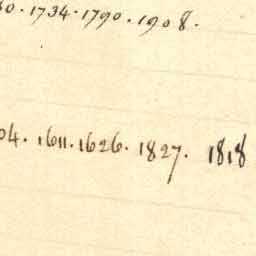 30. 1734. 1790. 1908.
04. 1611. 1626. 1827. 1818